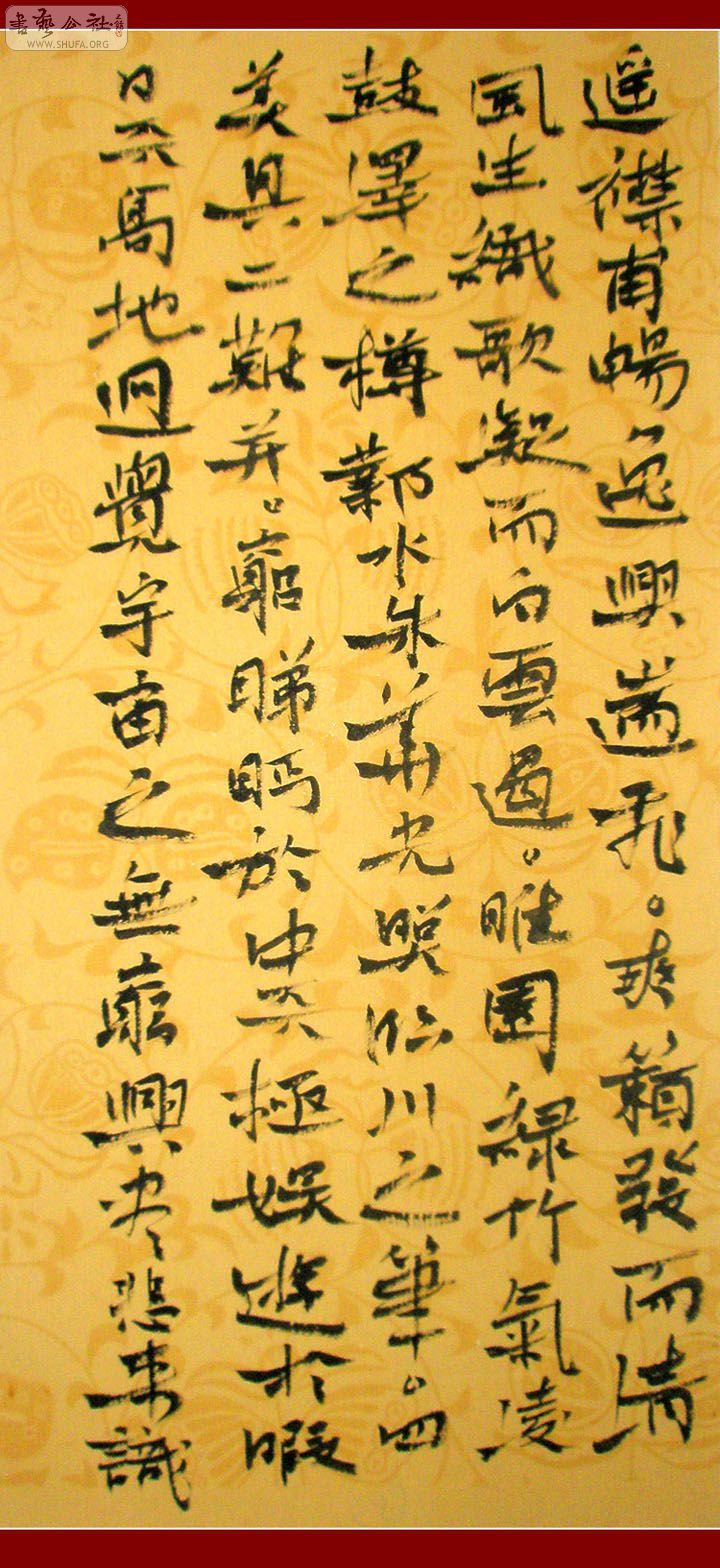 書藝公社
WWW.SHUFA.ORG
遥襟甫暢逸興遄飛。爽籟發而清
風生纖歌凝而白雲遏。睢園緑竹氣凌
彭澤之樽鄴水朱華光照臨川之筆。四
美具二難并。窮睇眄於中天極娱遊於暇
日天高地迥覺宇宙之無窮興盡悲来識